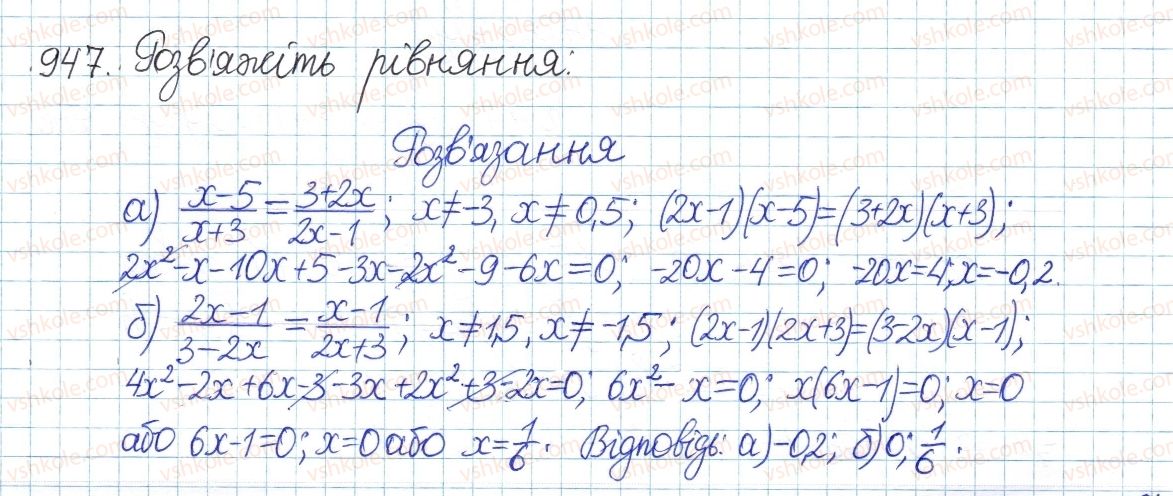 947. Розв'яжіть рівняння:
Розв'язання
а) (x-5)/(x+3) = (3+2x)/(2x-1); x≠-3, x≠0,5; (2x-1)(x-5)=(3+2x)(x+3);
2x²-x-10x+5-3x-2x²-9-6x=0; -20x-4=0; -20x=4; x=-0,2.
б) (2x-1)/(3-2x) = (x-1)/(2x+3); x≠1,5, x≠-1,5; (2x-1)(2x+3)=(3-2x)(x-1);
4x²-2x+6x-3-3x+2x²+3-2x=0; 6x²-x=0; x(6x-1)=0; x=0
або 6x-1=0; x=0 або x=1/6. Відповідь: а) -0,2; б) 0; 1/6.